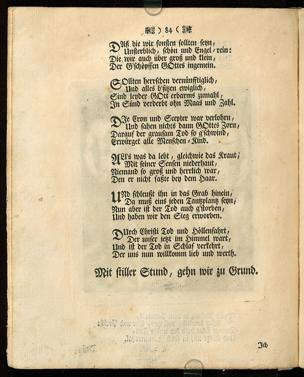 ) 84 (
Daß die wir sonsten sollten seyn,
Unsterblich, schön und Engel-rein:
Die wir auch über groß und klein,
Der G'schöpffen GOttes ingemein.
Sollten herrschen vernünfftiglich,
Und alles b'sitzen ewiglich,
Sind leyder GOtt erbarms zumahl,
In Sünd verderbt ohn Maas und Zahl.
Die Cron und Scepter war verlohren,
Und sahen nichts dann GOttes Zorn,
Darauf der grausam Tod so g'schwind,
Erwürget alle Menschen-Kind.
Alls was da lebt, gleichwie das Kraut,
Mit seiner Sensen niederhaut,
Niemand so groß und herrlich war,
Den er nicht faßte bey dem Haar.
Und schleußt ihn in das Grab hinein,
Da muß eins jeden Tantzplantz seyn,
Nun aber ist der Tod auch g'storben,
Und haben wir den Sieg erworben.
Durch Christi Tod und Höllenfahrt,
Der unser jetzt im Himmel wart,
Und ist der Tod in Schlaf verkehrt,
Der uns nun willkomm lieb und werth.
Mit stiller Stund, gehn wir zu Grund.
Ich